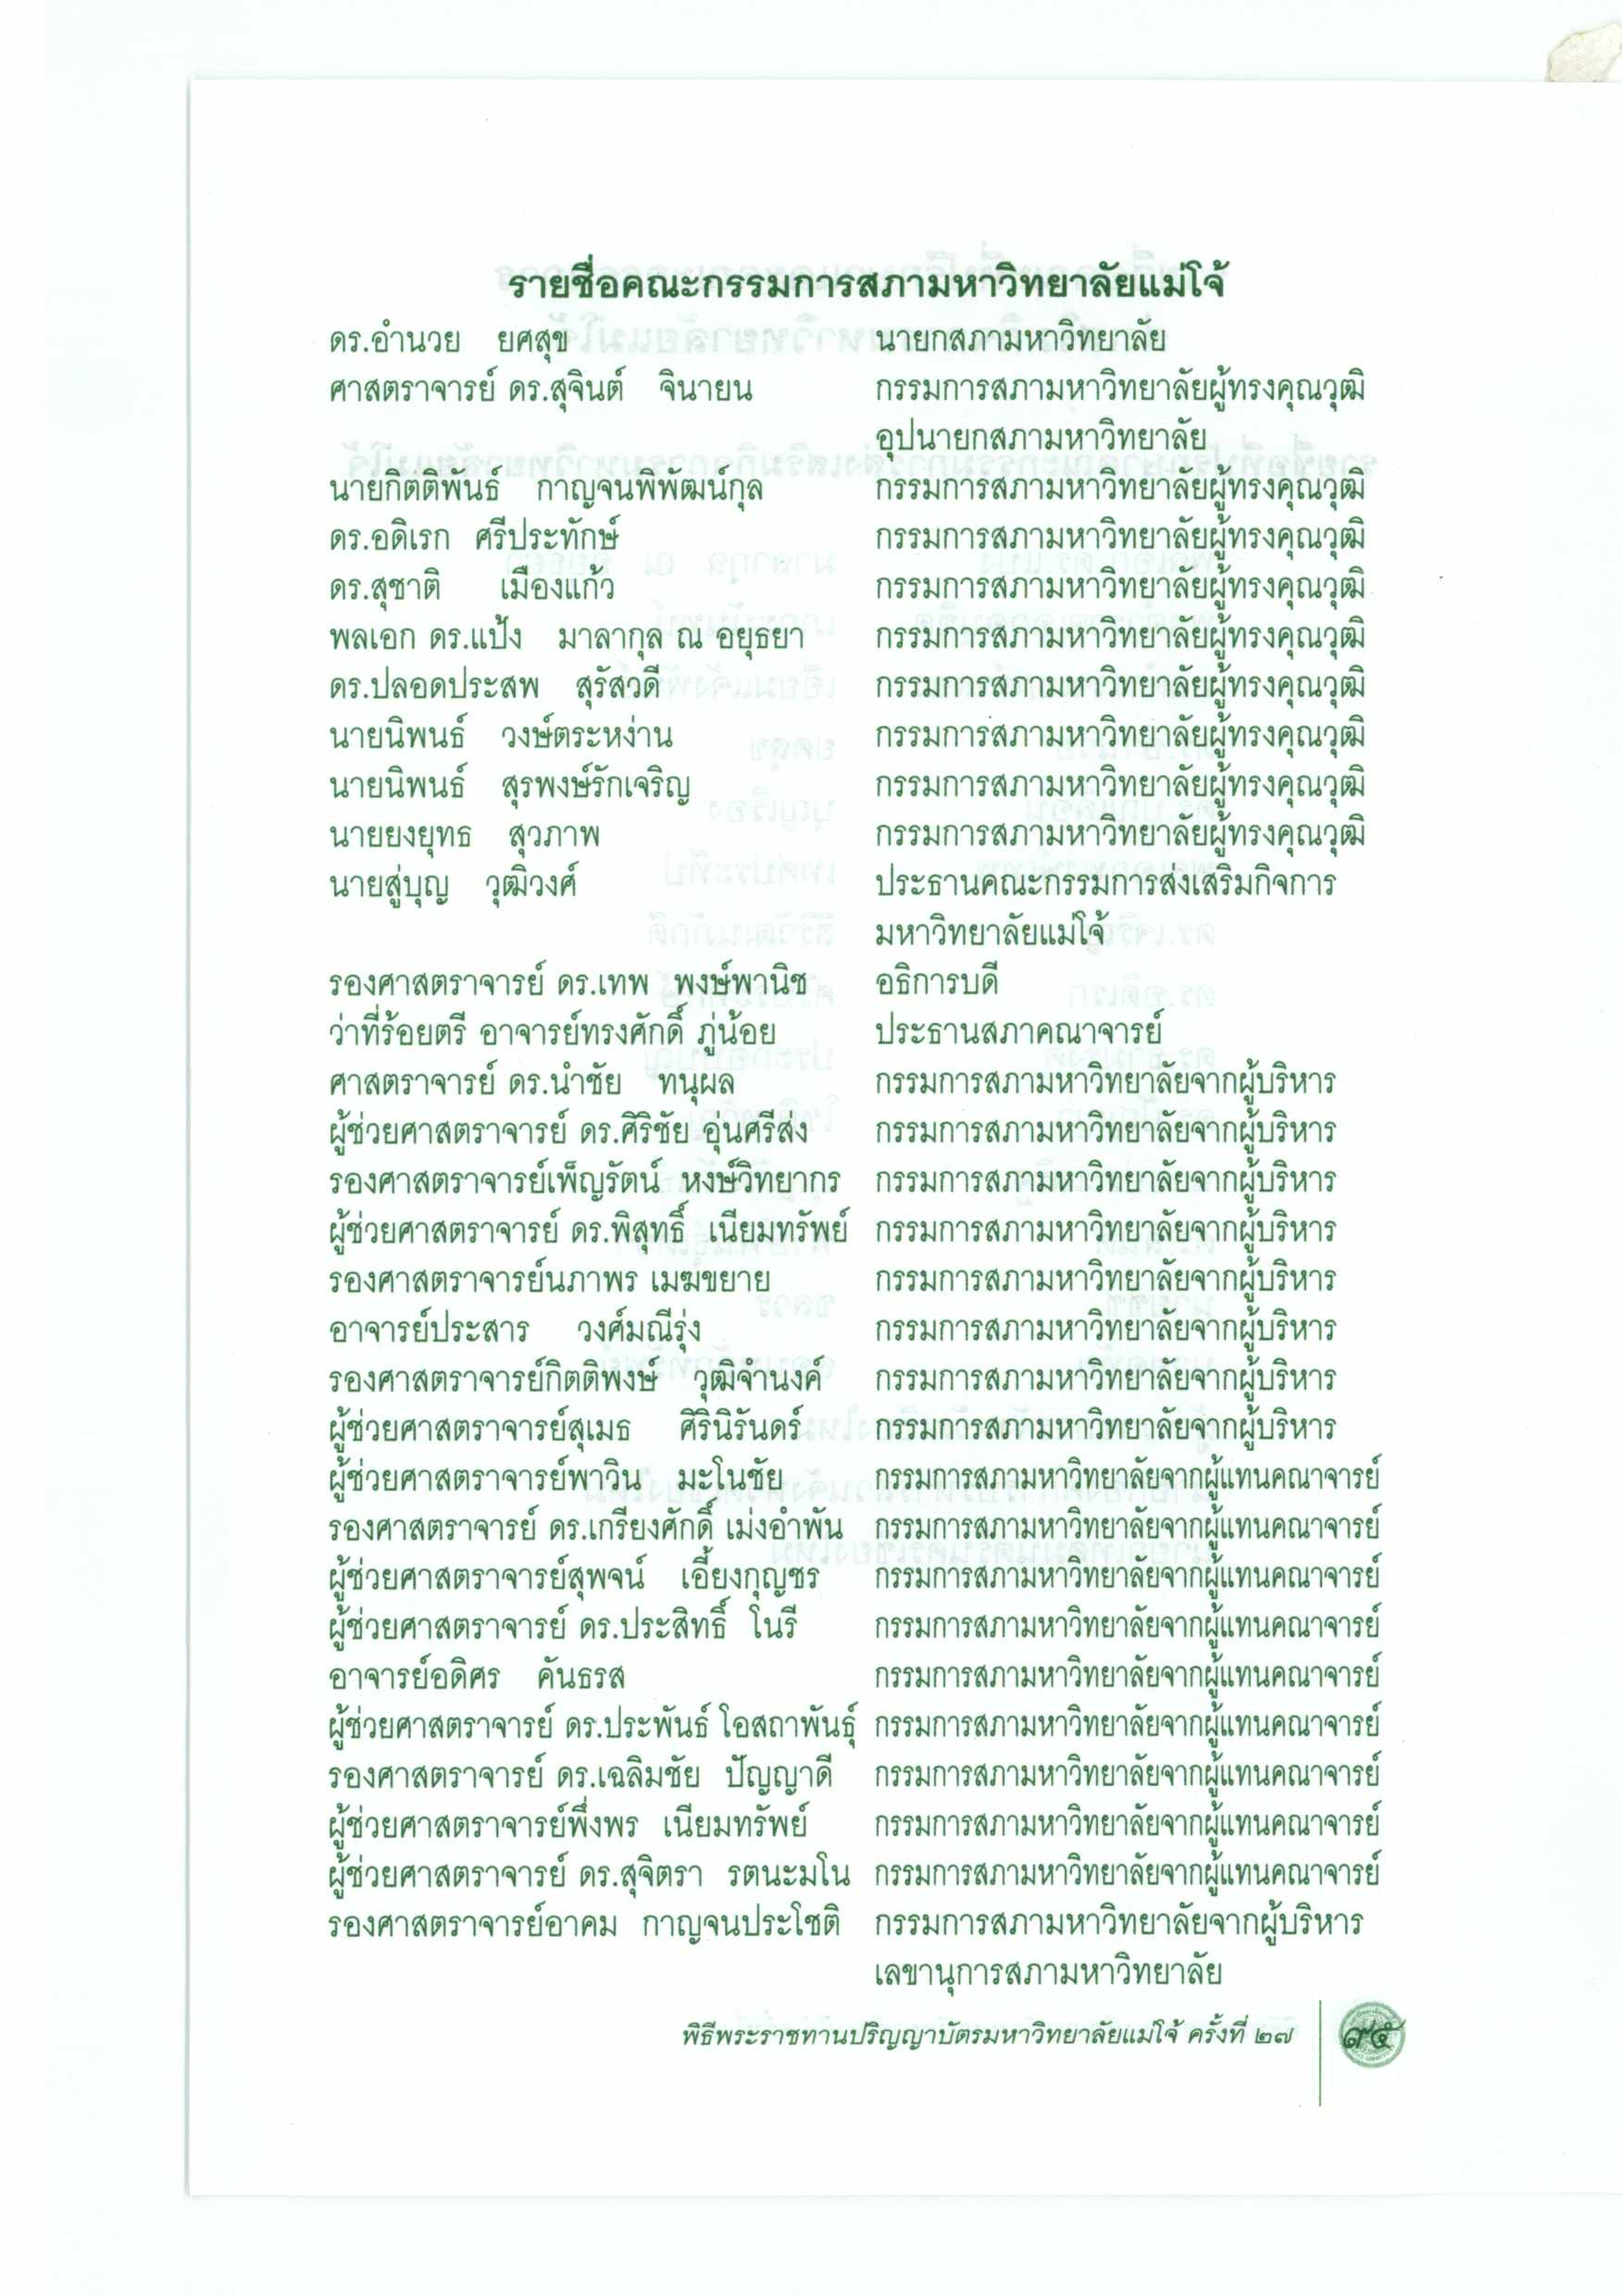 รายชื่อคณะกรรมการสภามหาวิทยาลัยแม่โจ้
ดร.อำนวย ยศสุข นายกสภามหาวิทยาลัย
ศาสตราจารย์ ดร.สุจินต์ จินายน กรรมการสภามหาวิทยาลัยผู้ทรงคุณวุฒิ
อุปนายกสภามหาวิทยาลัย
นายกิตติพันธ์ กาญจนพิพัฒน์กุล กรรมการสภามหาวิทยาลัยผู้ทรงคุณวุฒิ
ดร.อดิเรก ศรีประทักษ์ กรรมการสภามหาวิทยาลัยผู้ทรงคุณวุฒิ
ดร.สุชาติ เมืองแก้ว กรรมการสภามหาวิทยาลัยผู้ทรงคุณวุฒิ
พลเอก ดร.แป้ง มาลากุล ณ อยุธยา กรรมการสภามหาวิทยาลัยผู้ทรงคุณวุฒิ
ดร.ปลอดประสพ สุรัสวดี กรรมการสภามหาวิทยาลัยผู้ทรงคุณวุฒิ
นายนิพนธ์ วงษ์ตระหง่าน กรรมการสภามหาวิทยาลัยผู้ทรงคุณวุฒิ
นายนิพนธ์ สุรพงษ์รักเจริญ กรรมการสภามหาวิทยาลัยผู้ทรงคุณวุฒิ
นายยงยุทธ สุวภาพ กรรมการสภามหาวิทยาลัยผู้ทรงคุณวุฒิ
นายสู่บุญ วุฒิวงศ์ ประธานคณะกรรมการส่งเสริมกิจการ
มหาวิทยาลัยแม่โจ้
รองศาสตราจารย์ ดร.เทพ พงษ์พานิช อธิการบดี
ว่าที่ร้อยตรี อาจารย์ทรงศักดิ์ ภู่น้อย ประธานสภาคณาจารย์
ศาสตราจารย์ ดร.นำชัย ทนุผล กรรมการสภามหาวิทยาลัยจากผู้บริหาร
ผู้ช่วยศาสตราจารย์ ดร.ศิริชัย อุ่นศรีส่ง กรรมการสภามหาวิทยาลัยจากผู้บริหาร
รองศาสตราจารย์เพ็ญรัตน์ หงษ์วิทยากร กรรมการสภามหาวิทยาลัยจากผู้บริหาร
ผู้ช่วยศาสตราจารย์ ดร.พิสุทธิ์ เนียมทรัพย์ กรรมการสภามหาวิทยาลัยจากผู้บริหาร
รองศาสตราจารย์นภาพร เมฆขยาย กรรมการสภามหาวิทยาลัยจากผู้บริหาร
อาจารย์ประสาร วงศ์มณีรุ่ง กรรมการสภามหาวิทยาลัยจากผู้บริหาร
รองศาสตราจารย์กิตติพงษ์ วุฒิจำนงค์ กรรมการสภามหาวิทยาลัยจากผู้บริหาร
ผู้ช่วยศาสตราจารย์สุเมธ ศิรินิรันดร์ กรรมการสภามหาวิทยาลัยจากผู้บริหาร
ผู้ช่วยศาสตราจารย์พาวิน มะโนชัย กรรมการสภามหาวิทยาลัยจากผู้แทนคณาจารย์
รองศาสตราจารย์ ดร.เกรียงศักดิ์ เม่งอำพัน กรรมการสภามหาวิทยาลัยจากผู้แทนคณาจารย์
ผู้ช่วยศาสตราจารย์สุพจน์ เอี้ยงกุญชร กรรมการสภามหาวิทยาลัยจากผู้แทนคณาจารย์
ผู้ช่วยศาสตราจารย์ ดร.ประสิทธิ์ โนรี กรรมการสภามหาวิทยาลัยจากผู้แทนคณาจารย์
อาจารย์อดิศร คันธรส กรรมการสภามหาวิทยาลัยจากผู้แทนคณาจารย์
ผู้ช่วยศาสตราจารย์ ดร.ประพันธ์ โอสถาพันธุ์ กรรมการสภามหาวิทยาลัยจากผู้แทนคณาจารย์
รองศาสตราจารย์ ดร.เฉลิมชัย ปัญญาดี กรรมการสภามหาวิทยาลัยจากผู้แทนคณาจารย์
ผู้ช่วยศาสตราจารย์พึ่งพร เนียมทรัพย์ กรรมการสภามหาวิทยาลัยจากผู้แทนคณาจารย์
ผู้ช่วยศาสตราจารย์ ดร.สุจิตรา รตนะมโน กรรมการสภามหาวิทยาลัยจากผู้แทนคณาจารย์
รองศาสตราจารย์อาคม กาญจนประโชติ กรรมการสภามหาวิทยาลัยจากผู้บริหาร
เลขานุการสภามหาวิทยาลัย
พิธีพระราชทานปริญญาบัตรมหาวิทยาลัยแม่โจ้ ครั้งที่ ๒๗ ๙๕